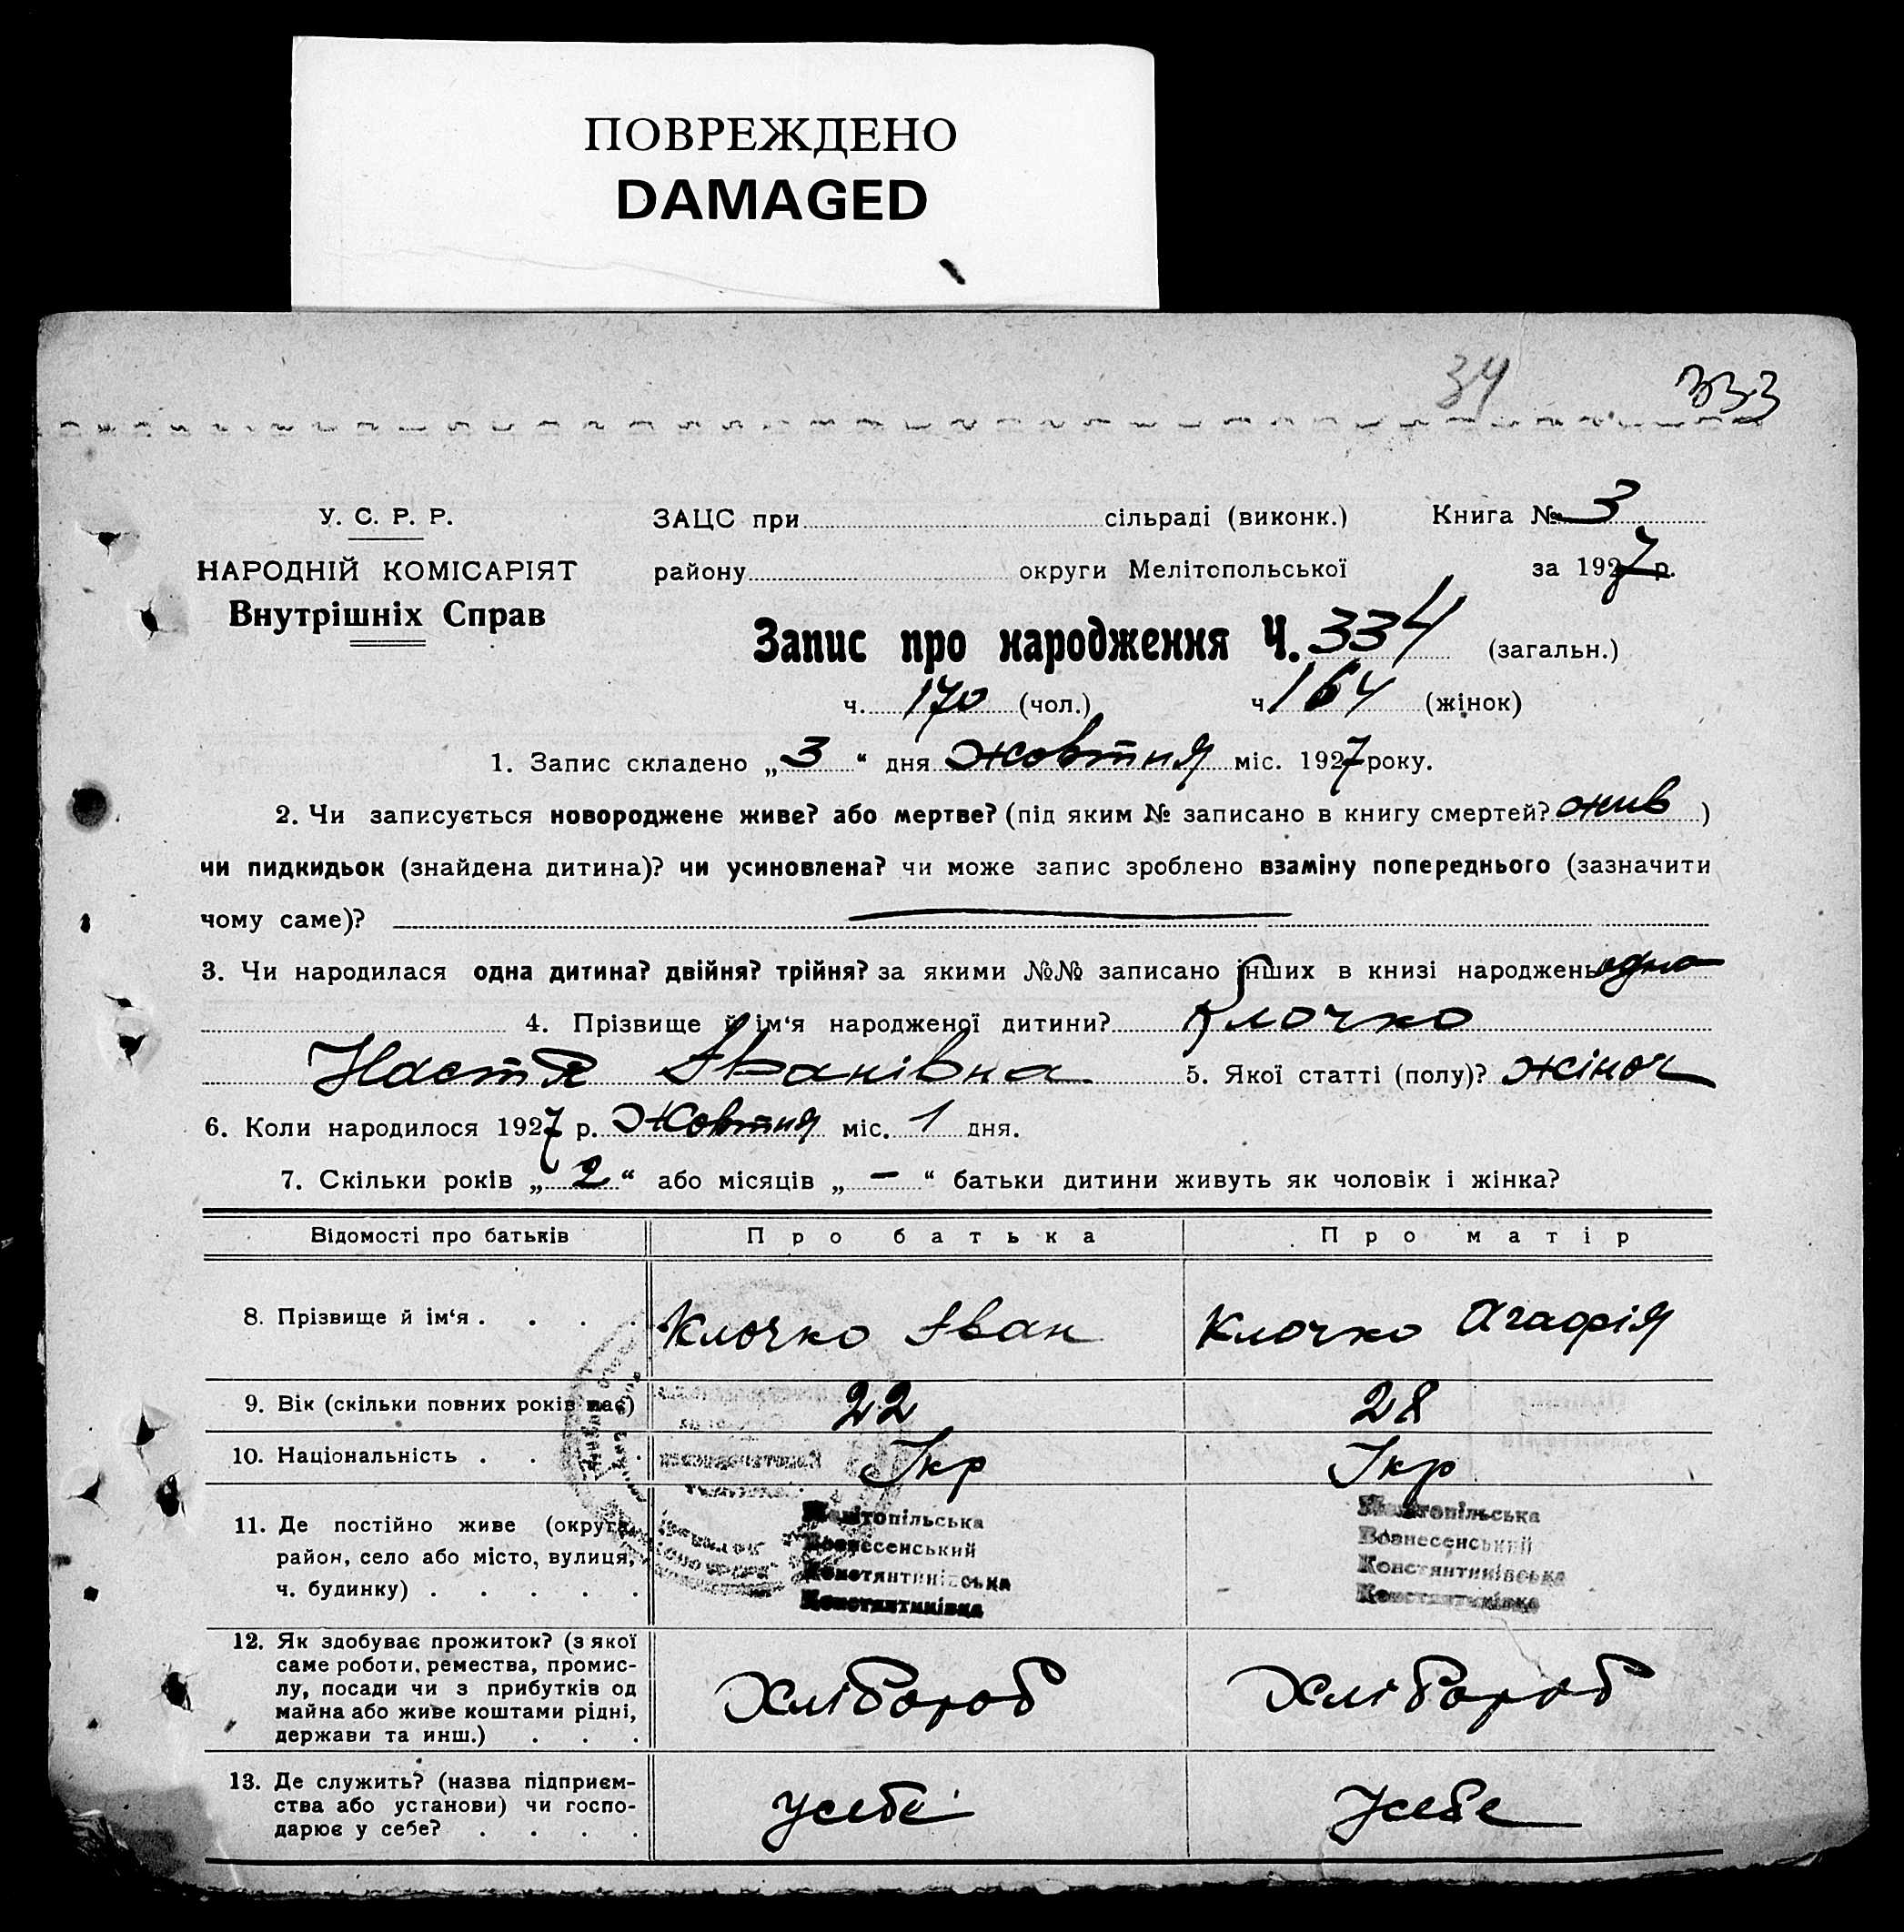 ПОВРЕЖДЕНО
DAMAGED
34 333
У. С. Р. Р. ЗАЦС при сільраді (виконк.) Книга № 3
НАРОДНІЙ КОМІСАРІЯТ району округи Мелітопольської за 1927 р.
Внутрішніх Справ
Запис про народження Ч. 334 (загальн.)
ч. 170 (чол.) ч. 164 (жінок)
1. Запис складено „ 3 “ дня жовтня міс. 1927 року.
2. Чи записується новороджене живе? або мертве? (під яким № записано в книгу смертей? жив )
чи пидкидьок (знайдена дитина)? чи усиновлена? чи може запис зроблено взаміну попереднього (зазначити
чому саме)?
3. Чи народилася одна дитина? двійня? трійня? за якими №№ записано інших в книзі народжень одна
4. Прізвище й ім‘я народженої дитини? Клочко
Настя Іванівна 5. Якої статті (полу)? жіноч
6. Коли народилося 1927 р. Жовтня міс. 1 дня.
7. Скільки років „ 2 “ або місяців „ — “ батьки дитини живуть як чоловік і жінка?
Відомості про батьків Про батька Про матір
8. Прізвище й ім‘я . . . . Клочко Іван Клочко Агафія
9. Вік (скільки повних років має) 22 28
10. Національність . . . . Укр Укр
11. Де постійно живе (округа, Мелітопільська Мелітопільська
район, село або місто, вулиця, Вознесенський Вознесенський
ч. будинку) . . . . . Констянтинівська Констянтинівська
Констянтинівка Констянтинівка
12. Як здобуває прожиток? (з якої
саме роботи, ремества, промис-
лу, посади чи з прибутків од Хлібороб Хлібороб
майна або живе коштами рідні,
держави та инш.) . . .
13. Де служить? (назва підприєм-
ства або установи) чи госпо- усебе Усебе
дарює у себе? . . . .